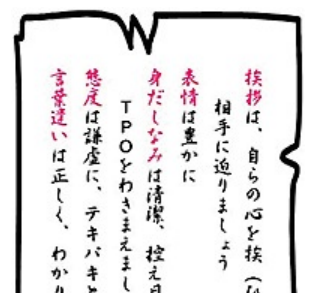 挨拶は、自らの心を挨（
相手に迫りましょう
表情は豊かに
身だしなみは清潔、控え目
TPOをわきまえまし
態度は謙虚に、テキパキと
言葉遣いは正しく、わかり